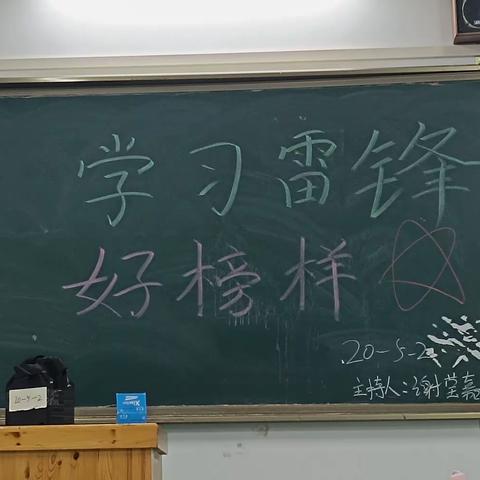 学习雷锋
好榜样
20-5-2
主持人:谢莹嘉
20-5-2